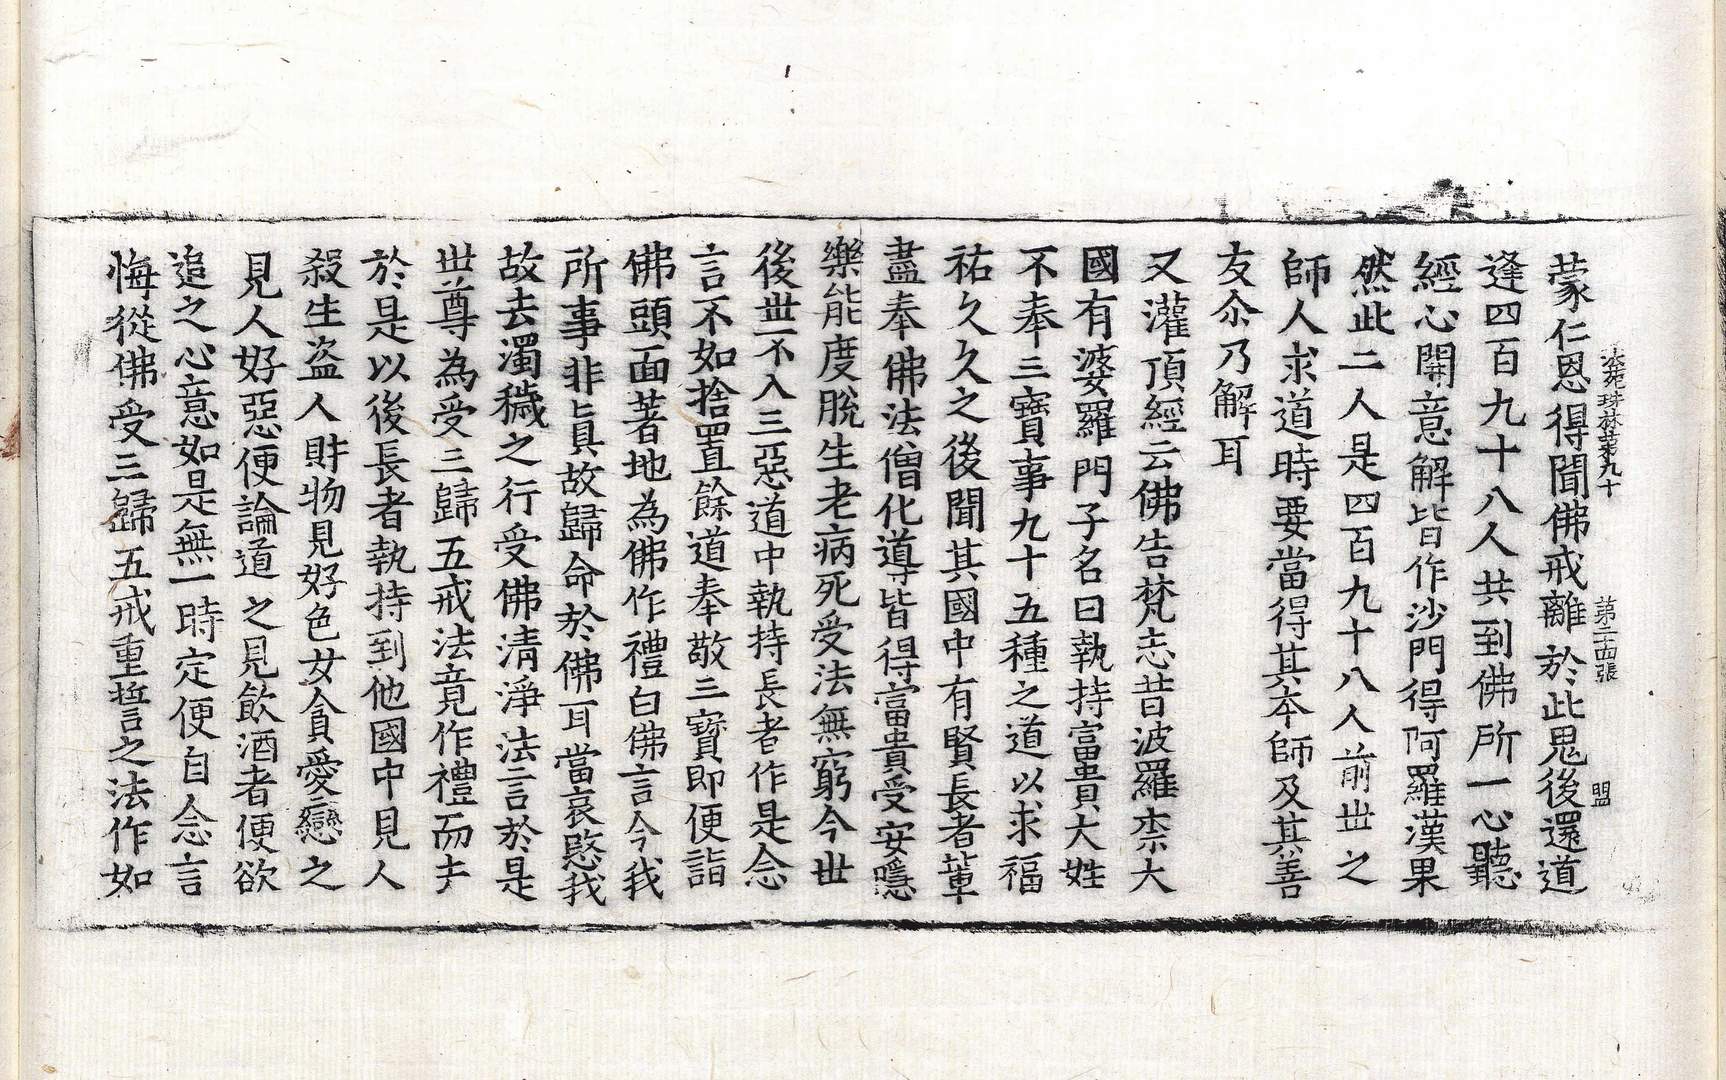 法苑珠林第九十　第二十四張　盟
蒙仁恩得聞佛戒離於此鬼後還道
逢四百九十八人共到佛所一心聽
經心開意解皆作沙門得阿羅漢果
然此二人是四百九十八人前世之
師人求道時要當得其本師及其善
友尒乃解耳
又灌頂經云佛告梵志昔波羅柰大
國有婆羅門子名曰執持富貴大姓
不奉三寶事九十五種之道以求福
祐久久之後聞其國中有賢長者輩
盡奉佛法僧化導皆得富貴受安隱
樂能度脫生老病死受法無窮今世
後世不入三惡道中執持長者作是念
言不如捨置餘道奉敬三寶即便詣
佛頭面著地為佛作禮白佛言今我
所事非真故歸命於佛耳當哀愍我
故去濁穢之行受佛清淨法言於是
世尊為受三歸五戒法竟作禮而去
於是以後長者執持到他國中見人
殺生盜人財物見好色女貪愛戀之
見人好惡便論道之見飲酒者便欲
追之心意如是無一時定便自念言
悔從佛受三歸五戒重誓之法作如